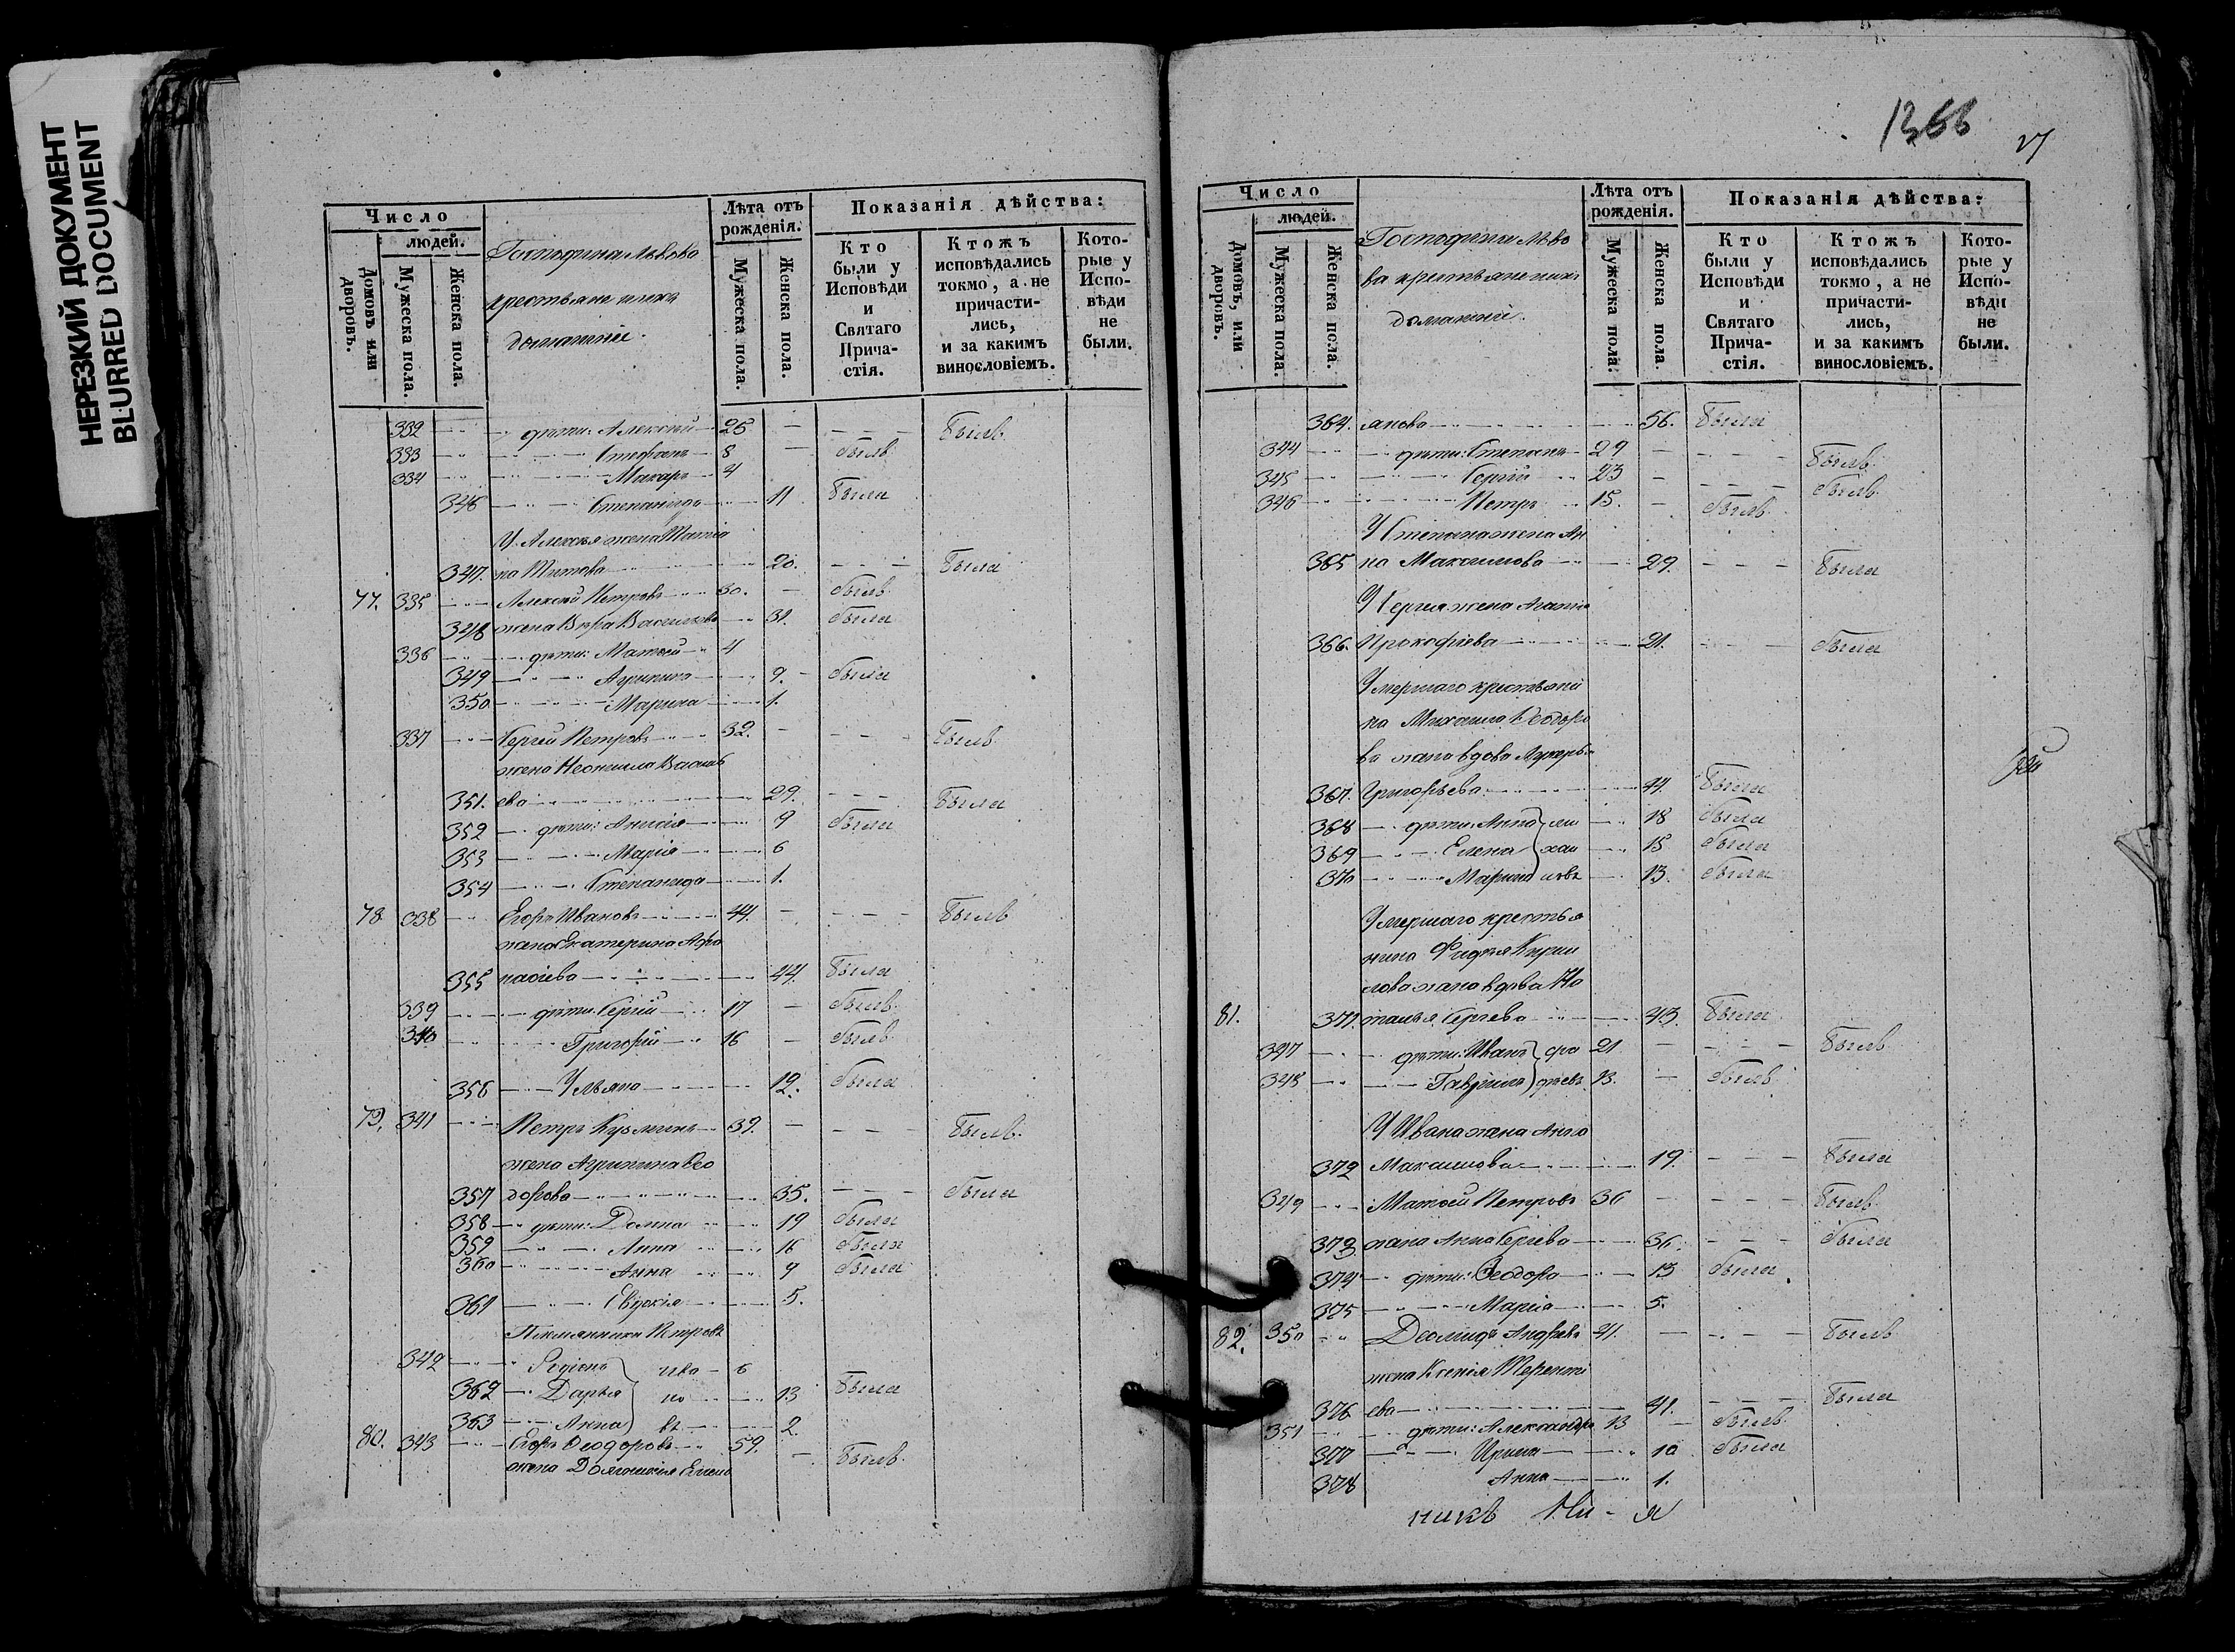 НЕРЕЗКИЙ ДОКУМЕНТ
BLURRED DOCUMENT
Число
людей.
Домовъ или дворовъ.
Мужеска пола.
Женска пола.
Господина Львова
крестьяне и ихъ
домашніи.
Лѣта отъ рожденія.
Мужеска пола.
Женска пола.
Показанія дѣйства:
Кто были у Исповѣди и Святаго Прича-стія.
Ктожъ исповѣдались токмо, а не причасти-лись, и за какимъ винословіемъ.
Кото-рые у Испо-вѣди не были.
332 дѣти: Алексѣй 25 Былъ
333 Стефанъ 8 былъ
334 Макаръ 4
346 Степанида 11 Была
У Алексѣя жена
347. на Титова 20. Была
77. 335 Алексѣй Петровъ 30. былъ
348 жена Вѣра Васильева 31. была
336 дѣти: Матѳей 4
349 Агрипина 9. была
350 Марина 1.
337 Сергей Петровъ 32. Былъ
жена Неонила Василь
351. ева 29. Была
352 дѣти: Анисія 9 была
353 Марія 6
354 Степанида 1.
78 338 Егоръ Ивановъ 44. Былъ
жена Екатерина Афа
355 насіева 44. Была
339 дѣти: Сергій 17 былъ
340 Григорій 16 былъ
356 Ульяна 12. была
79. 341 Петръ Кузминъ 39. Былъ
жена Агрипина Ѳео
357 дорова 35. была
358 дѣти: Домна 19 была
359 Анна 16 была
360 Анна 9 была
361 Евдокія 5.
Племянники Петровъ
342 Родіонъ ива 6
362 Дарья но 13 Была
363 Анна въ 2.
80. 343 Егоръ Ѳеодоровъ 59. Былъ
жена
1366
27
Число
людей.
Домовъ, или дворовъ.
Мужеска пола.
Женска пола.
Господина Льво
ва крестьяне и ихъ
домашніи.
Лѣта отъ рожденія.
Мужеска пола.
Женска пола.
Показанія дѣйства:
Кто были у Исповѣди и Святаго Прича-стія.
Ктожъ исповѣдались токмо, а не причасти-лись, и за какимъ винословіемъ.
Кото-рые у Испо-вѣди не были.
364. янова 56. Была
344 дѣти: Степанъ 29 Былъ
345 Сергій 23 былъ
346 Петръ 15. былъ
У Степана жена Ан
365 на Максимова 29. Была
У Сергія жена Агапія
366. Прокофіева 21. была
Умершаго крестьяни
на Михаила Ѳеодоро
ва жена вдова Лукерья
367. Григорьева 44 Была
368 дѣти: Анна ми 18 была
369 Елена хаи 15 была
370 Марина ловы 13. была
Умершаго крестья
нина Кирил
лова жена вдова На
81. 371. талья Сергева 43. Была
347 дѣти: Иванъ 21 Былъ
348 Гавріилъ 13. былъ
У Ивана жена Анна
372 Максимова 19. Была
349 Матѳей Петровъ 36 Былъ
373. жена Анна Сергева 36. была
374 дѣти: Ѳеодора 13 была
375 Марія 5.
82. 350 Андреевъ 41. Былъ
жена Ксенія Терентi
376 ева 41. Была
351 дѣти: Александръ 13 былъ
377 Ирина 10 была
378 Анна 1.
никъ Ни - я